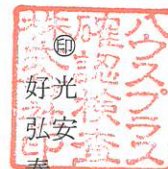 ハウスプラス
確認検査
㊞
光安
好弘